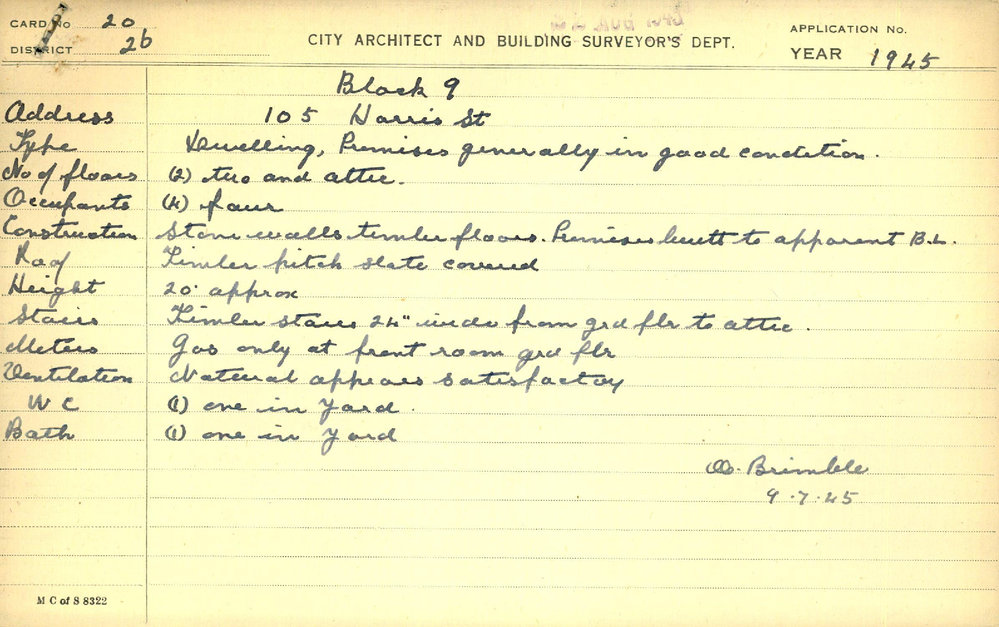 CARD No 20
DISTRICT 26
CITY ARCHITECT AND BUILDING SURVEYOR'S DEPT.
APPLICATION No.
YEAR 1945
Block 9
Address 105 Harris St
Type Dwelling, Premises generally in good condition.
No of floors (2) two and attic.
Occupants (4) four
Construction Stone walls timber floors. Premises built to apparent B.L.
Roof Timber pitch slate covered
Height 20' approx
Stairs Timber stairs 24" wide from grd flr to attic.
Meters Gas only at front room grd flr
Ventilation Natural appears satisfactoy
W C (1) one in yard.
Bath (1) one in yard
Brimble
9.7.45
M C of S 8322